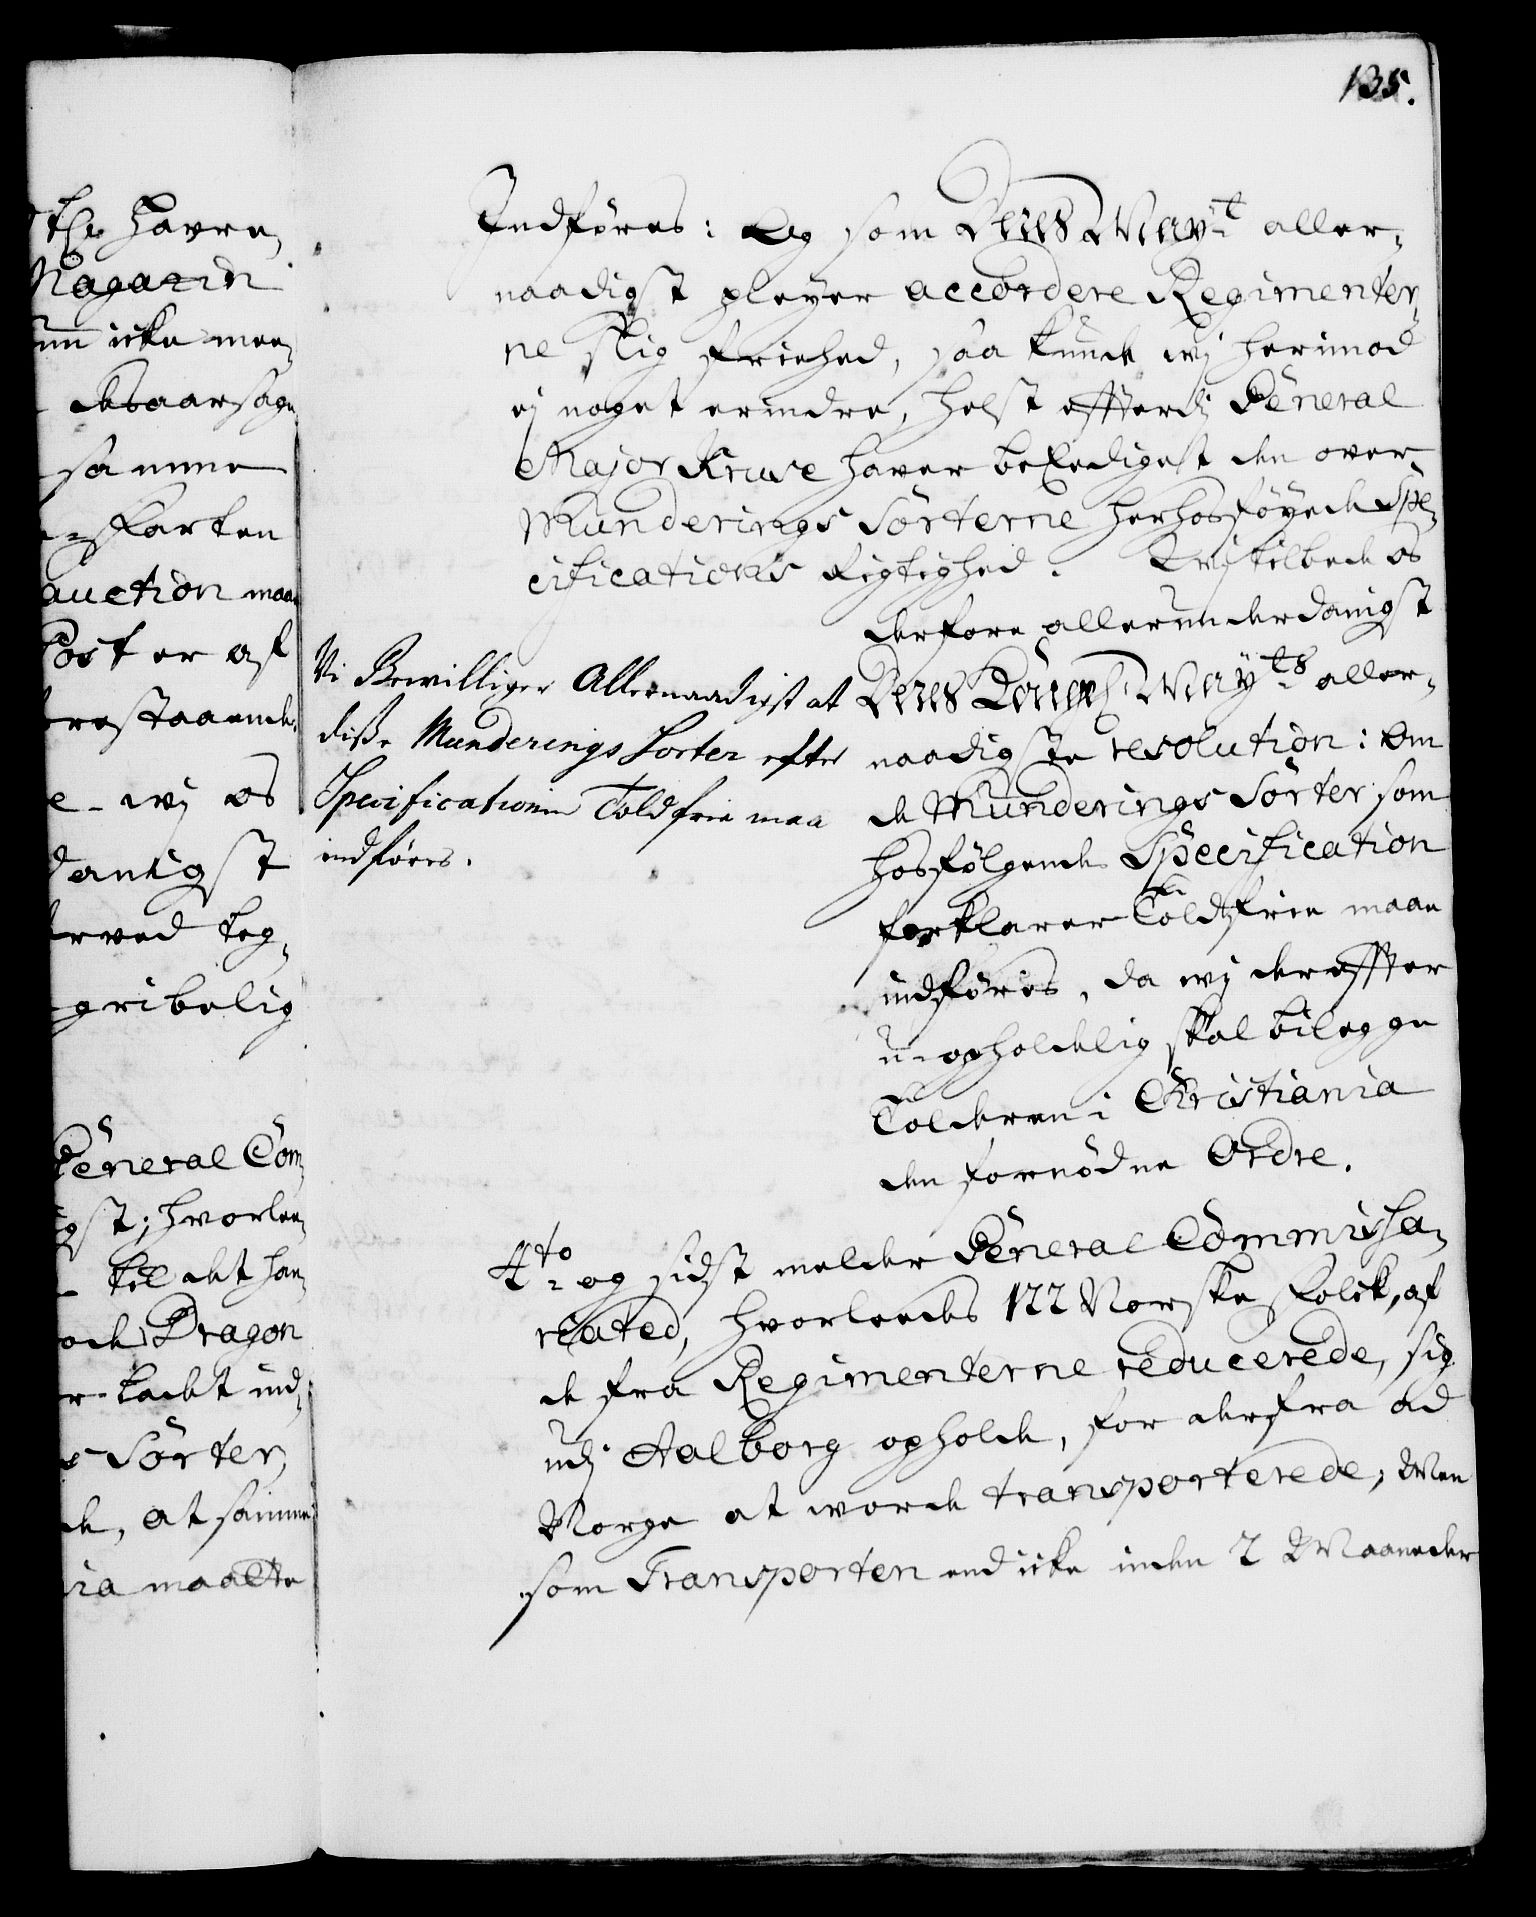 135.
Indføres: Og som Deris May.t aller-
naadigst pleyer accordere Regimenter-
ne slig friehed, saa kunde wj herimod
ej noget erindre, helst effterdj General
Major Kruse haver beEediget den over
Munderings Sorterne herhosføyede Spe-
cifications Rigtighed. Wj udbede os
derfore allerunderdanigst
Deris Kongel. May.ts aller-
naadigste resolution: Om
de Munderings Sorter som
hosfølgende Specification
forklarer Toldfrie maae
indføris, da wj dereffter
u-opholdelig skal bilegge
Tolderen i Christiania
den fornødne Ordre.
Vi Bewilliger Allernaadigst at
diße Munderings Sorter efter
Specificationen Toldfrie maa
indføres.
4.to og sidst melder General Commissa-
riated, hvorledes 122 Norske Folck, af
de fra Regimenterne reducerede, sig
udj Aalborg opholde, for derfra ad
Norge at worde transporterede; Men
som Transporten end icke inden 2 Maaneder
Havre,
Magazin
icke mee-
samme
auction maa
Post er af
wj os
danigst
gribelig
General Com-
gst; hvorlee-
til det han-
Dragon
Sorter,
de, at samme
ia maatte